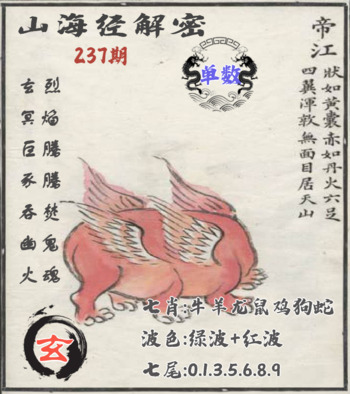 山海经解密
237期
单数
帝江
狀如黄囊赤如丹火六足
四翼渾敦無面目居天山
玄冥巨豕吞幽火
烈焰騰騰焚鬼魂
七肖:牛羊龙鼠鸡狗蛇
波色:绿波+红波
七尾:0.1.3.5.6.8.9
玄